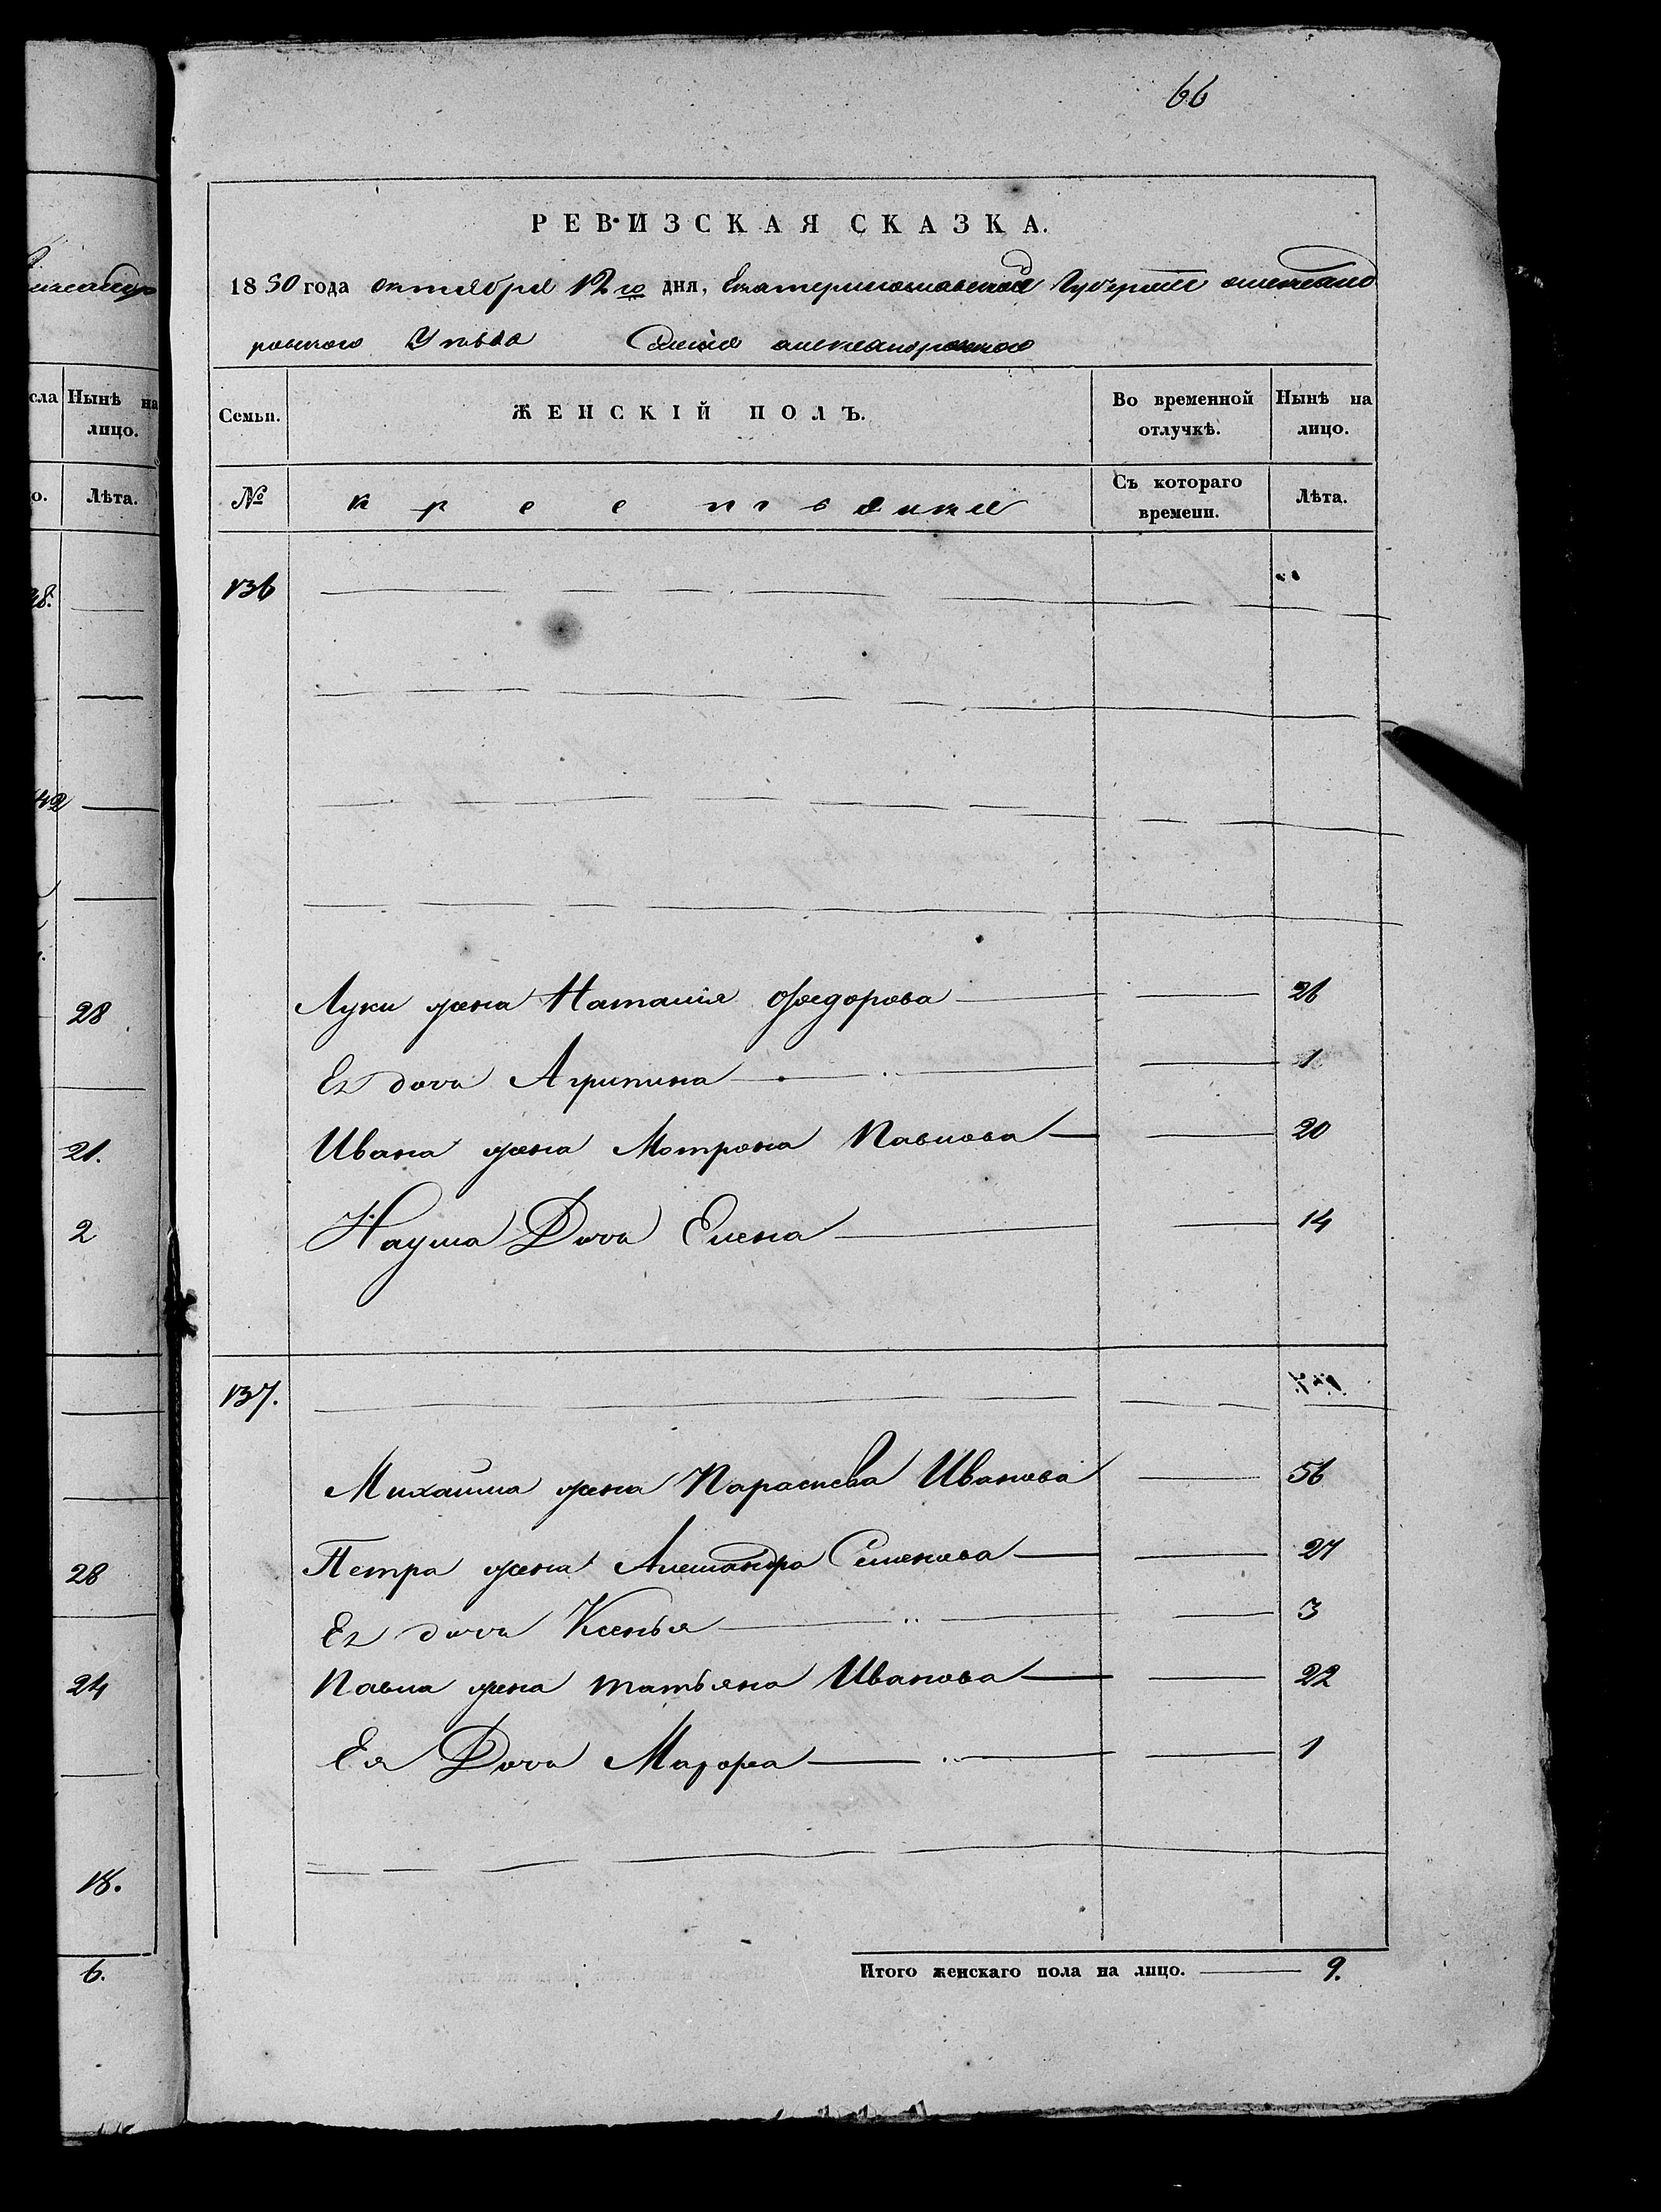 66
РЕВИЗСКАЯ СКАЗКА.
1850 года октября 12го дня, Екатеринославской Губернии александ
ровского Уѣзда Селенія александровского
Семьи. ЖЕНСКІЙ ПОЛЪ. Во временной отлучкѣ. Нынѣ на лицо.
№ крестьяне Съ котораго времени. Лѣта.
136
Луки жена Наталія Федорова 26
Ея дочь Агрипина 1
Ивана жена Мотрона Павлова 20
Наума Дочь Елена 14
137.
Михайла жена Параскева Иванова 56
Петра жена Александра Семенова 27
Ея дочь Ксенья 3
Павла жена татьяна Иванова 22
Ея Дочь 1
Итого женскаго пола на лицо. 9.
сла Нынѣ на лицо.
о. Лѣта.
38.
42
28
21.
2
28
24
18.
6.